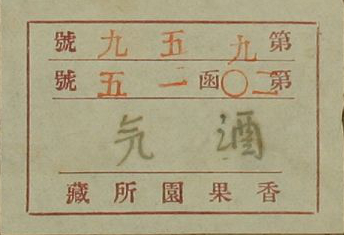 第九五九號
第二〇函一五號
酒
香果園所藏